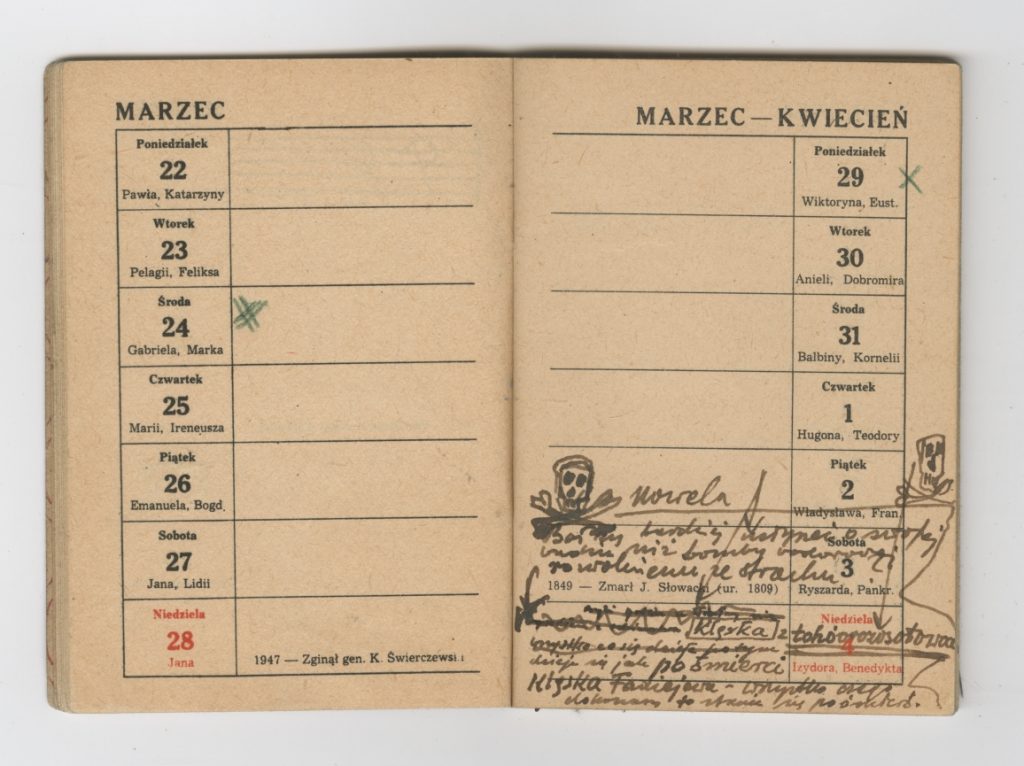 MARZEC
Poniedziałek
22
Pawła, Katarzyny
Wtorek
23
Pelagii, Feliksa
Środa
24
Gabriela, Marka
Czwartek
25
Marii, Ireneusza
Piątek
26
Emanuela, Bogd.
Sobota
27
Jana, Lidii
Niedziela
28
Jana
1947 — Zginął gen. K. Świerczewski
MARZEC — KWIECIEŃ
Poniedziałek
29
Wiktoryna, Eust.
Wtorek
30
Anieli, Dobromira
Środa
31
Balbiny, Kornelii
Czwartek
1
Hugona, Teodory
Piątek
2
Władysława, Fran.
nowela
bardziej o swojej
niż bomby wodorowej
ze strachu
Sobota
3
Ryszarda, Pankr.
1849 — Zmarł J. Słowacki (ur. 1809)
Niedziela
4
Izydora, Benedykta
Klęska z
wszystko co się dzieje potym
dzieje się jak po śmierci
Klęska Fadiejewa - wszystko czego
dokonano to stanie się po śmierci.